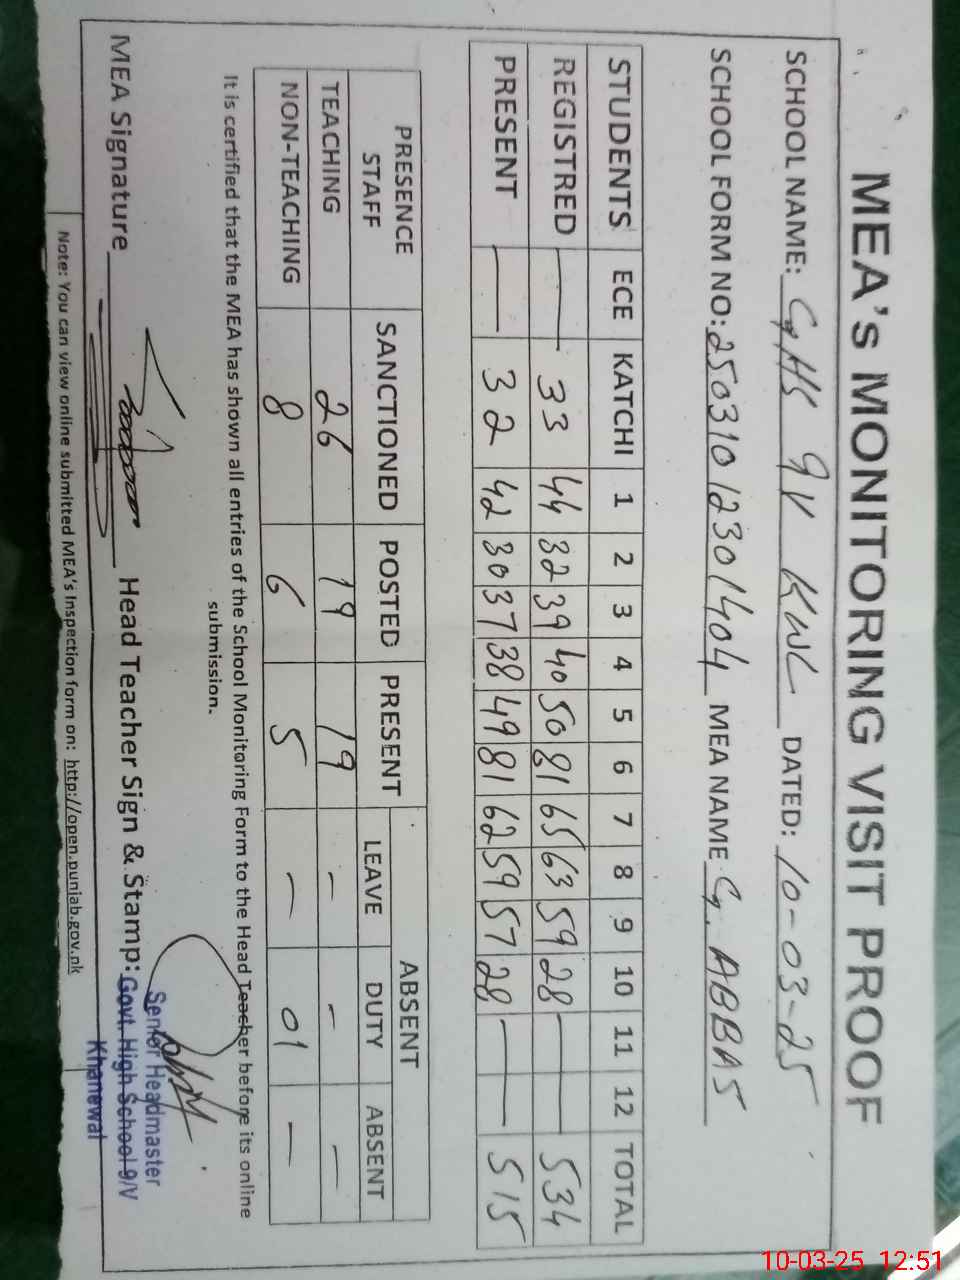 MEA's MONITORING VISIT PROOF
SCHOOL NAME: GHS 9V KWL DATED: 10-03-25
SCHOOL FORM NO: 25031012301404 MEA NAME G. ABBAS
STUDENTS ECE KATCHI 1 2 3 4 5 6 7 8 9 10 11 12 TOTAL
REGISTRED — 33 44 32 39 40 50 81 65 63 59 28 — 534
PRESENT — 32 42 30 37 38 49 81 62 59 57 28 — 515
PRESENCE STAFF SANCTIONED POSTED PRESENT ABSENT
LEAVE DUTY ABSENT
TEACHING 26 19 19 - - -
NON-TEACHING 8 6 5 - 01 -
It is certified that the MEA has shown all entries of the School Monitoring Form to the Head Teacher before its online
submission.
MEA Signature Head Teacher Sign & Stamp:
Senior Headmaster
Govt. High School 9/V
Khanewal
Note: You can view online submitted MEA's Inspection form on: http://open.punjab.gov.pk
10-03-25 12:51